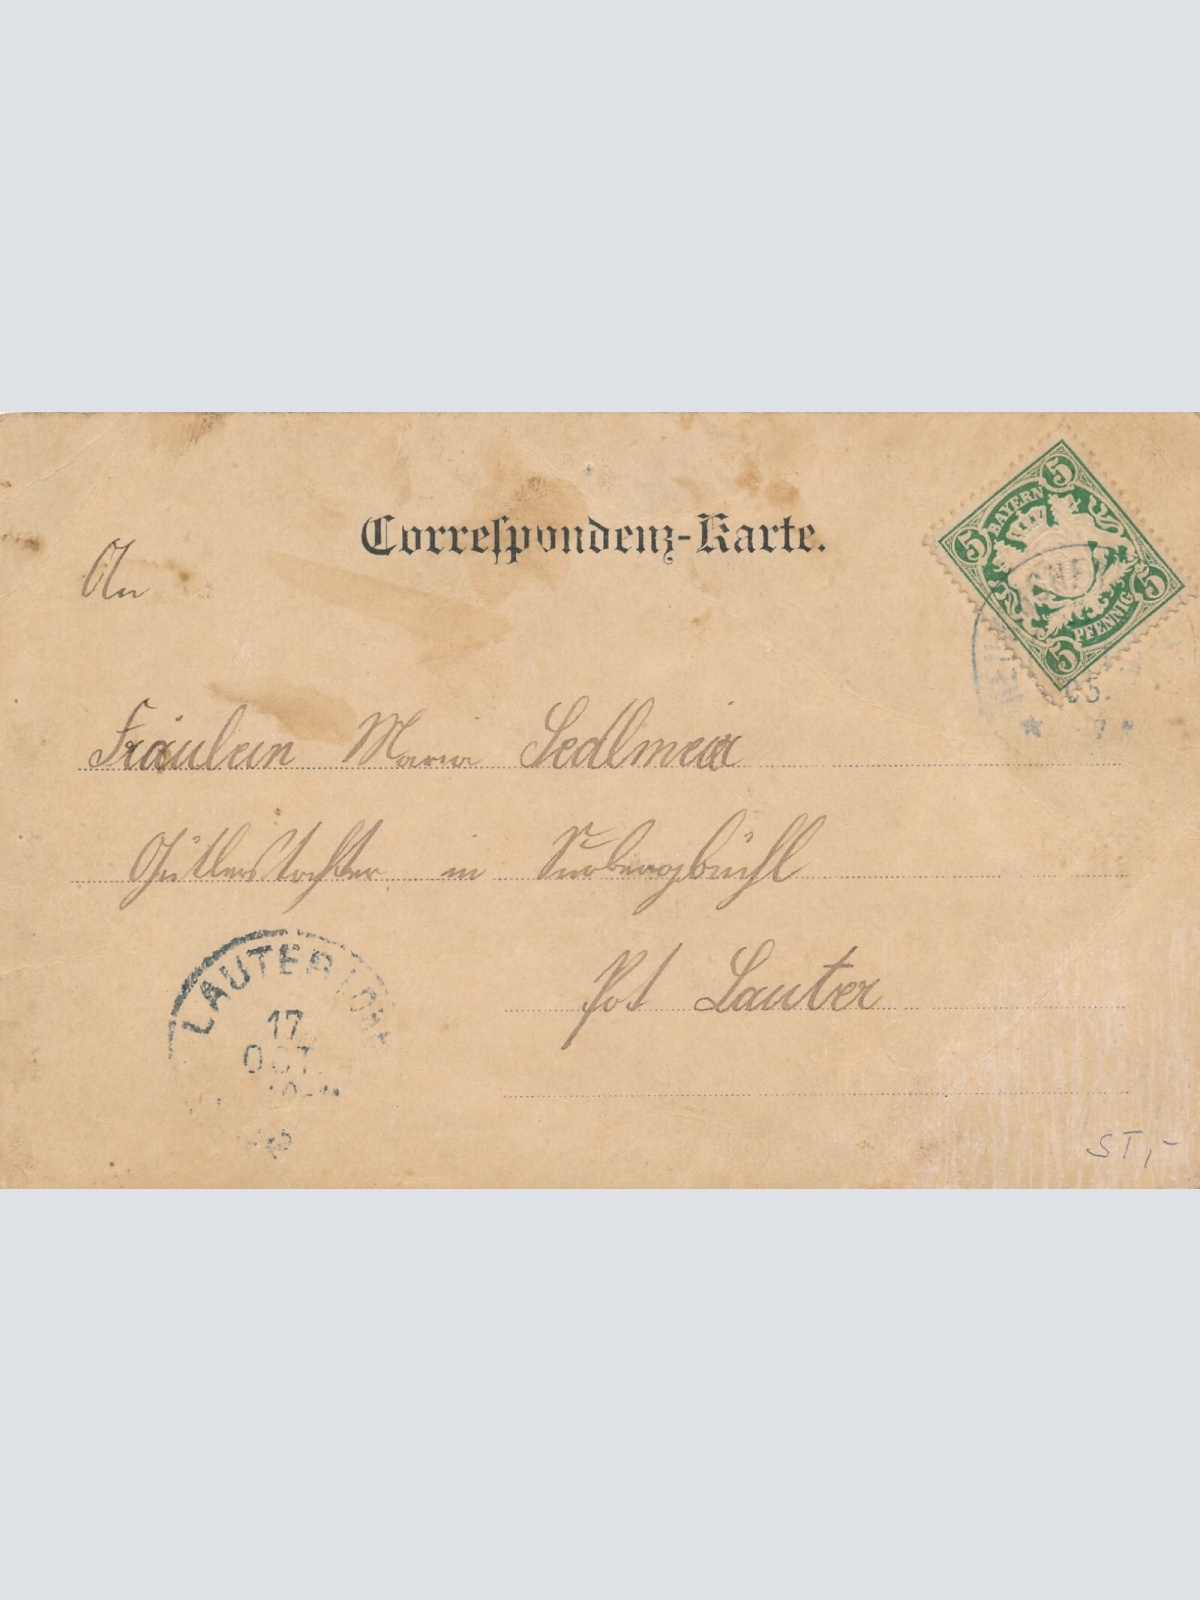 Correspondenz-Karte.
BAYERN
5
5
5
5
PFENNIG
An
Fräulein Maria Sedlmeir
Gütlerstochter in Surbergbüchl
Post Lauter
LAUTER
17
OCT.
ST,-